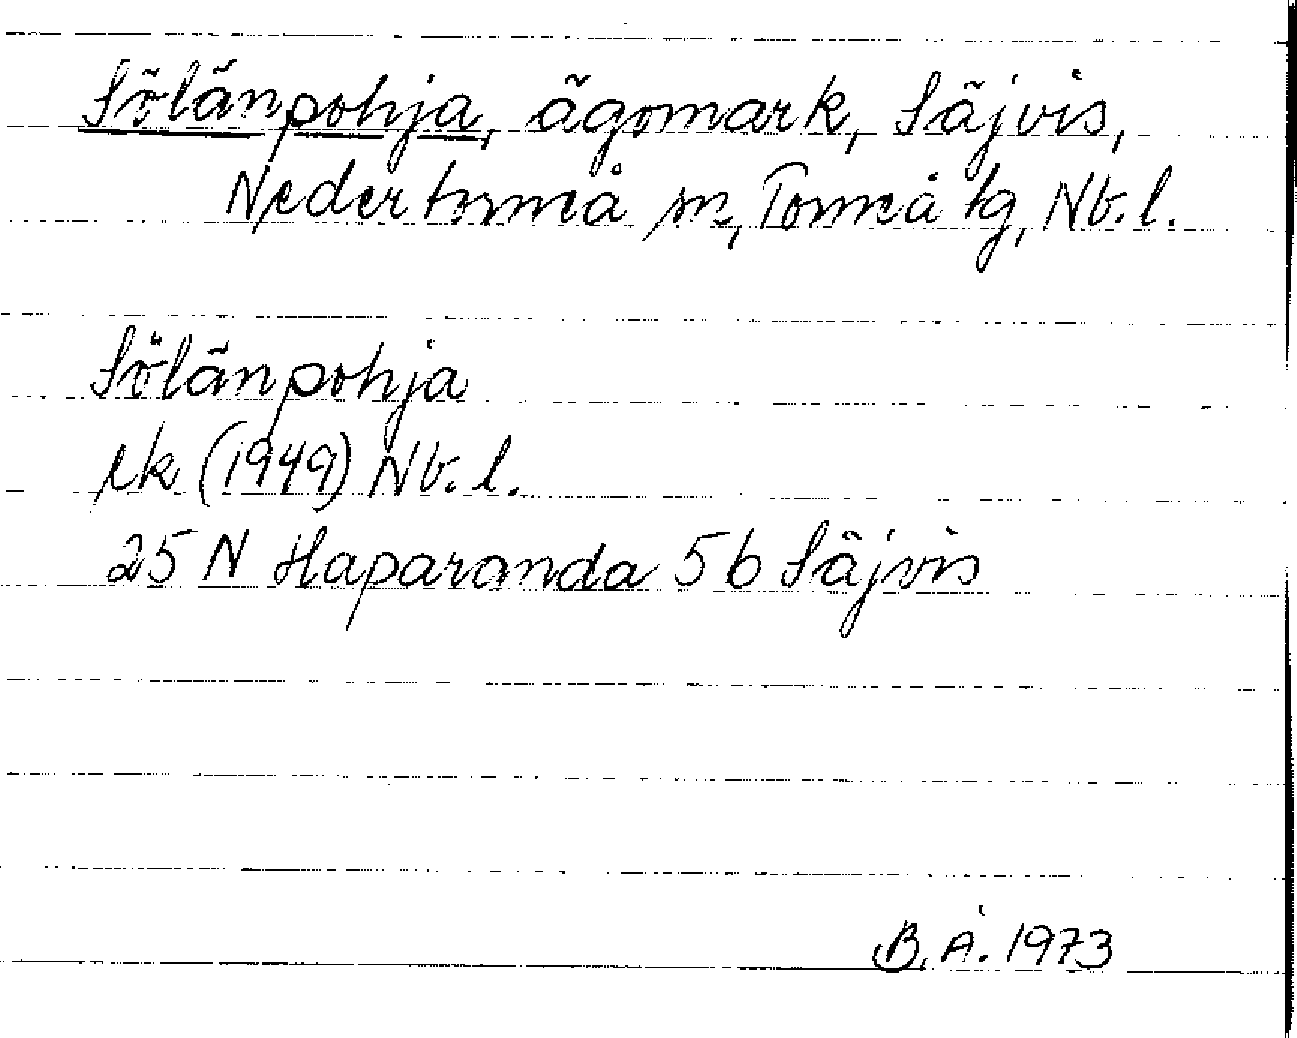 Sölänpohja, ägomark, Säjvis,
Nedertorneå sn, Torneå tg, Nb. l.
Sölänpohja
ek (1949) Nb. l.
25 N Haparanda 5 b Säjvis
B. Å. 1973